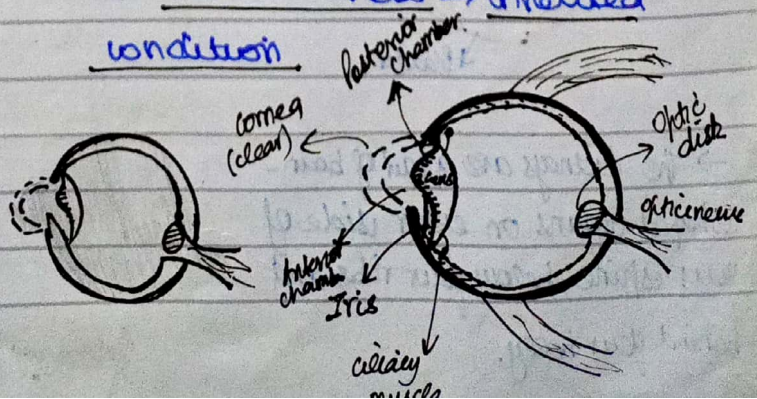 condition
Posterior
chamber.
cornea
(clear)
lens
Optic
disk
opticnerve
Anterior
chamber
Iris
ciliary
muscle